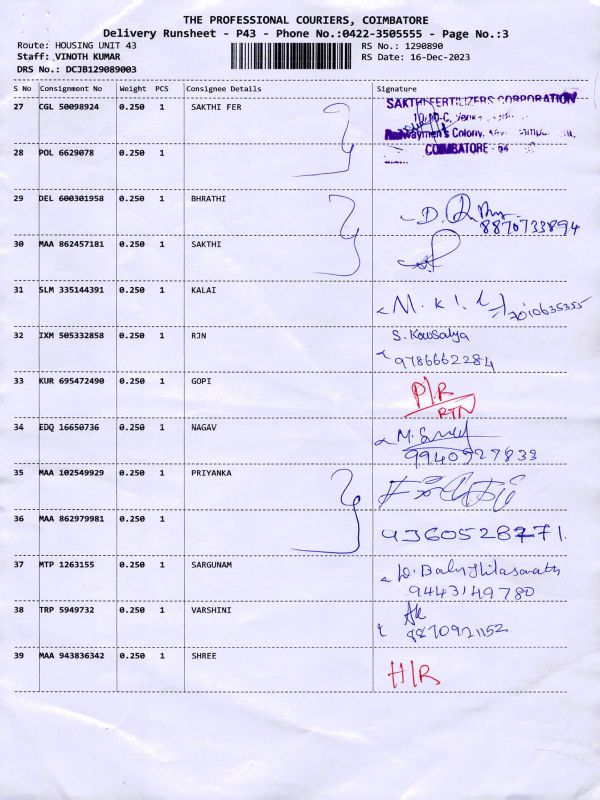 THE PROFESSIONAL COURIERS, COIMBATORE
Delivery Runsheet - P43 - Phone No.:0422-3505555 - Page No.:3
Route: HOUSING UNIT 43 RS No.: 1290890
Staff: VINOTH KUMAR RS Date: 16-Dec-2023
DRS No.: DCJB129089003
S No Consignment No Weight PCS Consignee Details Signature
27 CGL 50098924 0.250 1 SAKTHI FER
SAKTHI FERTILIZERS CORPORATION
Railwaymen's Colony,
COIMBATORE - 64
28 POL 6629078 0.250 1
29 DEL 600301958 0.250 1 BHRATHI
8870733894
30 MAA 862457181 0.250 1 SAKTHI
31 SLM 335144391 0.250 1 KALAI
7010635355
32 IXM 505332858 0.250 1 RJN S. Kowsalya
9786662284
33 KUR 695472490 0.250 1 GOPI P/R
RTN
34 EDQ 16650736 0.250 1 NAGAV
9940927838
35 MAA 102549929 0.250 1 PRIYANKA
36 MAA 862979981 0.250 1 9360528771.
37 MTP 1263155 0.250 1 SARGUNAM
9443149780
38 TRP 5949732 0.250 1 VARSHINI
8870921152
39 MAA 943836342 0.250 1 SHREE H/R